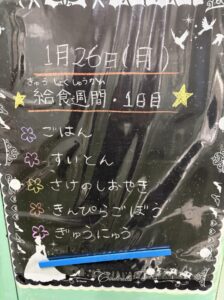 1月26日(月)
きゅうしょくしゅうかん
給食週間・1日目
ごはん
すいとん
さけのしおやき
きんぴらごぼう
ぎゅうにゅう